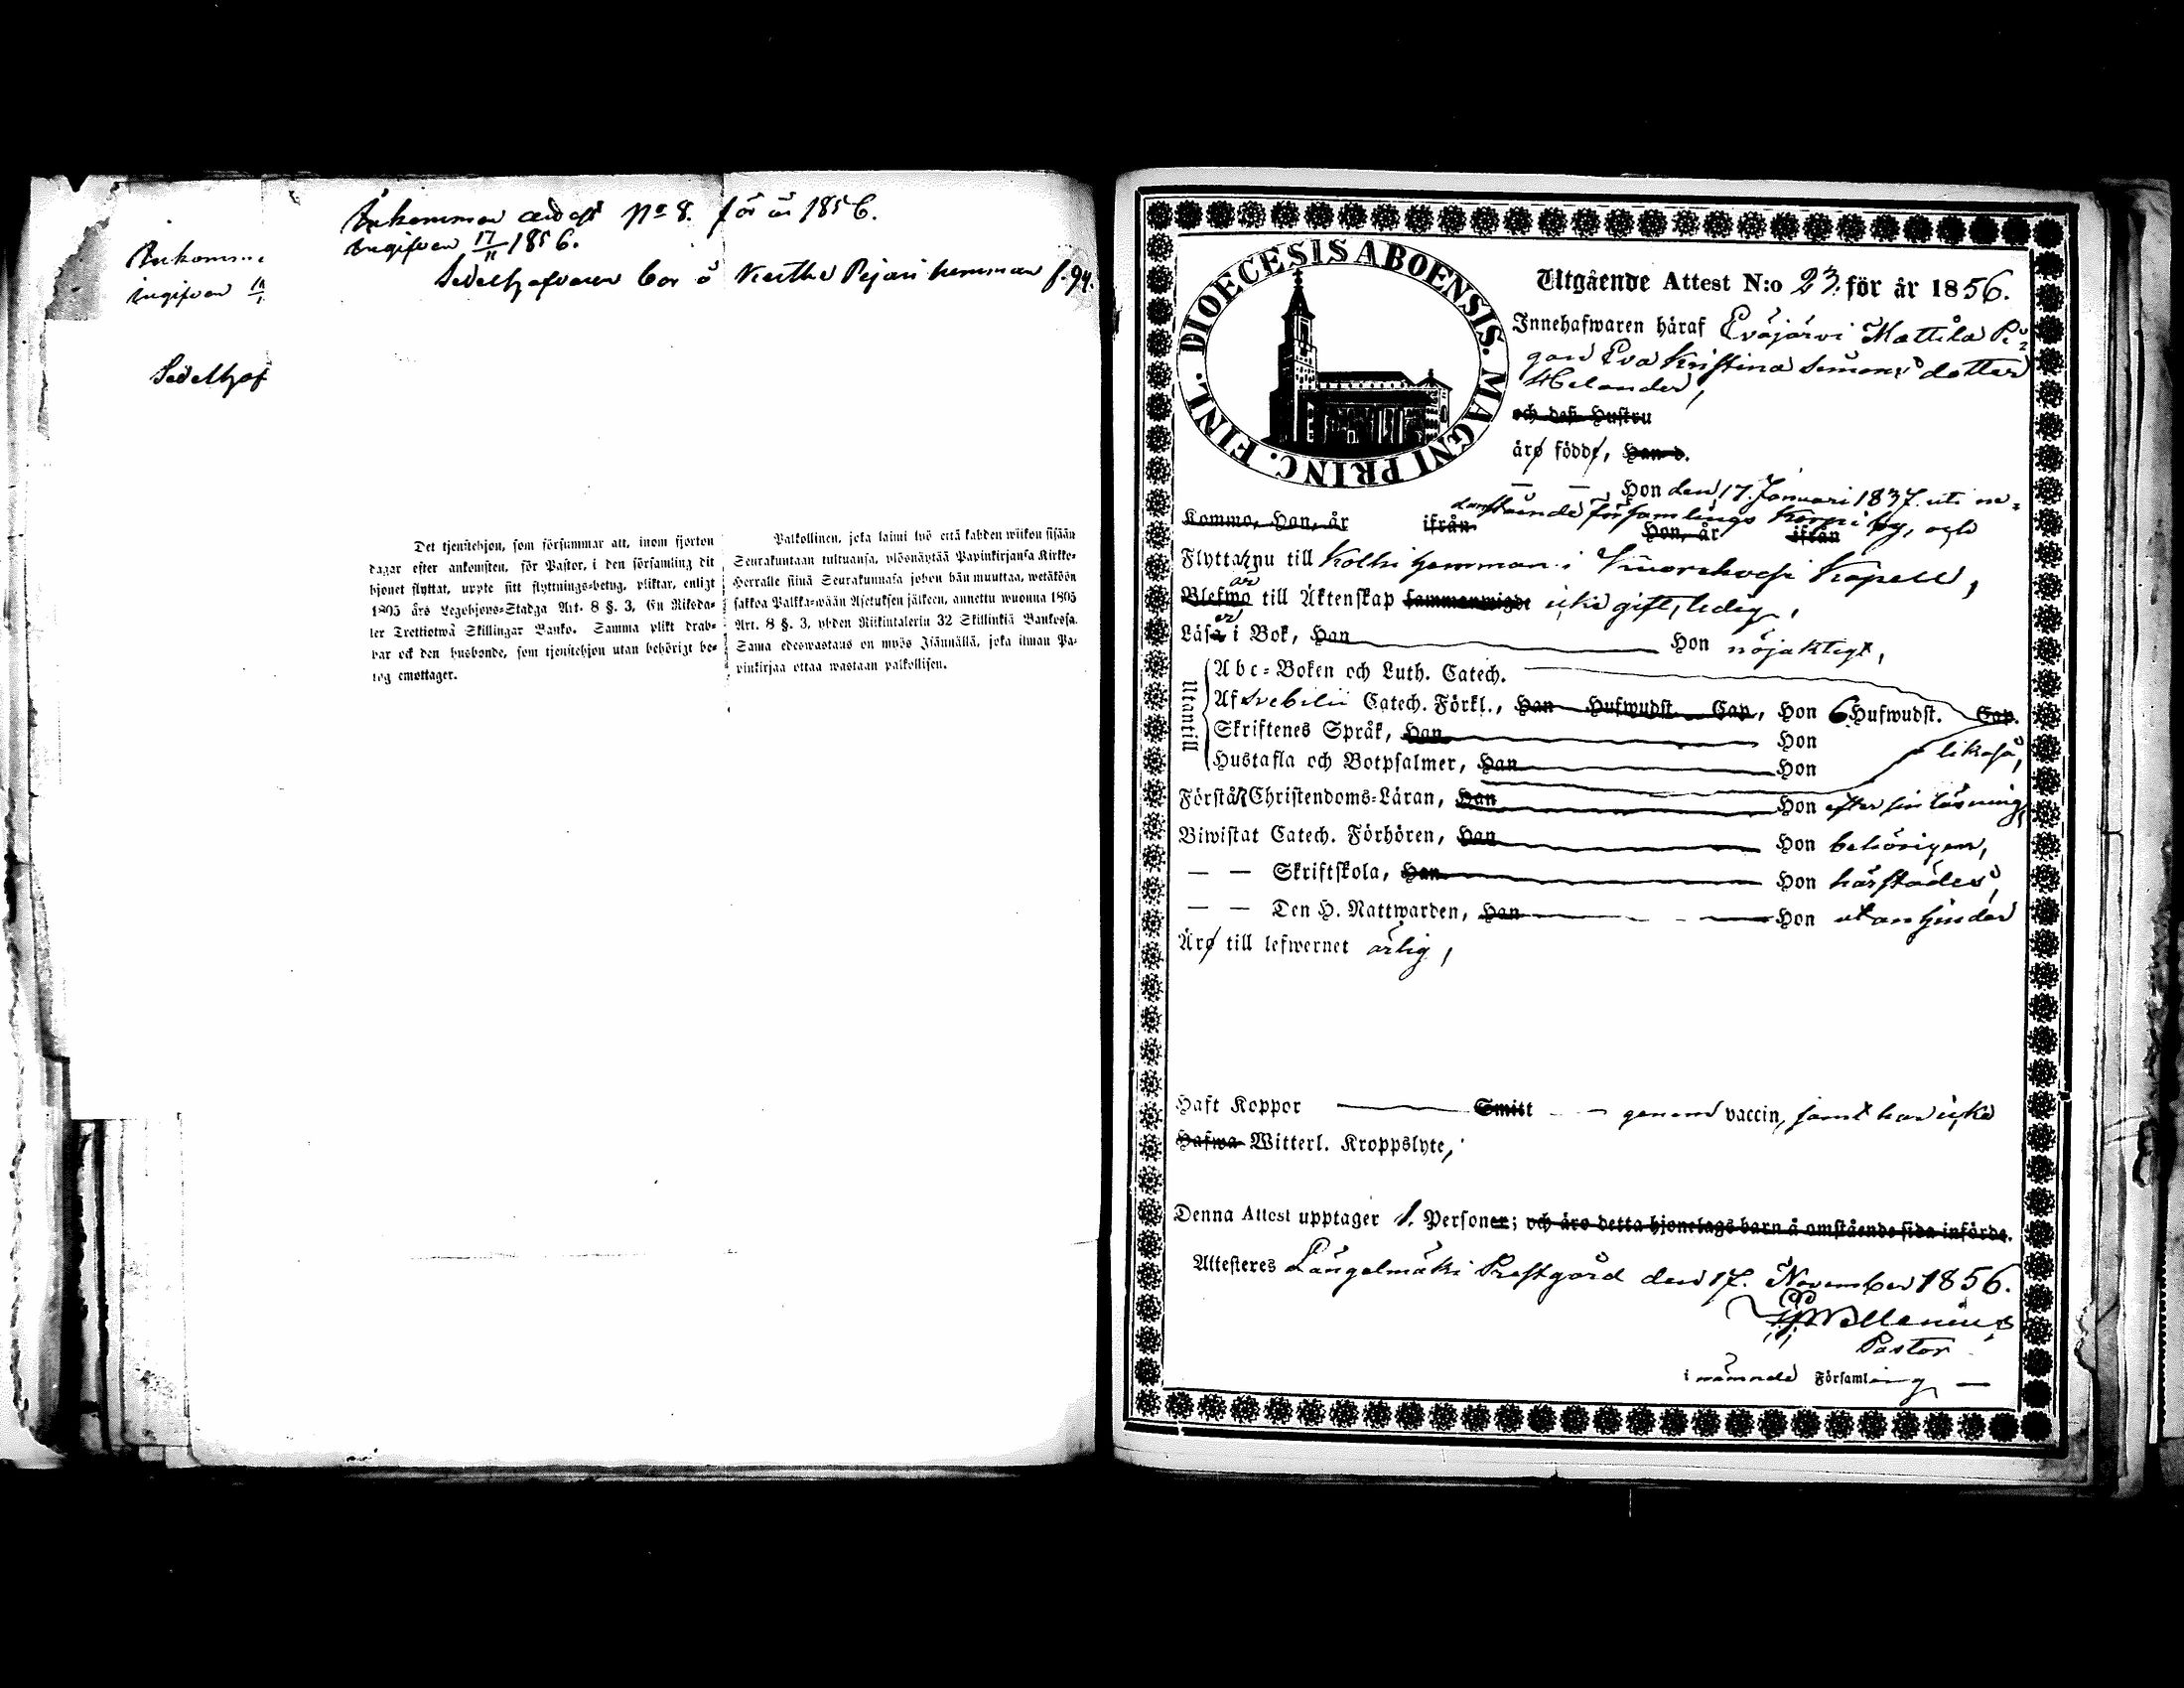 Ankommen attest No 8. för år 1856.
Ingifven 17/11 1856.
Sedelhafvaren bor å Pejari hemman f. 94.
Ankomme
Ingifven
Sedelhaf
Det tjenstehjon, som försummar att, inom fjorton
dagar efter ankomsten, för Pastor, i den församling dit
hjonet flyttat, uppte sitt flyttnings-betyg, pliktar, enligt
1805 års Legohjons-Stadga Art. 8 §. 3, En Riksda-
ler Trettiotwå Skillingar Banko. Samma plikt drab-
bar ock den husbonde, som tjenstehjon utan behörigt be-
tyg emottager.
Palkollinen, joka laimi lyö että kahden wiikon sisään
Seurakuntaan tultuansa, ylösnäytää Papinkirjansa Kirkko-
Herralle siinä Seurakunnasa johon hän muuttaa, wetäköön
sakkoa Palkka-wään Asetuksen jälkeen, annettu wuonna 1805
Art. 8 §. 3, yhden Riikintalerin 32 Skillinkiä Bankossa.
Sama edeswastaus on myös Isännällä, joka ilman Pa-
pinkirjaa ottaa wastaan palkollisen.
DIOECESIS ABOENSIS. MAGNI PRINC. FINL.
Utgående Attest N:o 23. för år 1856.
Innehafwaren häraf Eväjärvi Mattila Pi-
gan Eva Kristina Simonsdotter
Helander,
och deß Hustru
äro födde, Han d.
— — Hon den 17. Januari 1837. uti ne-
danstående församlings Korpi by, och
Komma, Han, år ifrån Hon, år ifrån
Flytta nu till Kolhi hemman i Kuorehvesi Kapell,
Blefwo är till Äktenskap sammanwigde icke gift, ledig,
Läsa er i Bok, Han Hon nöjaktigt,
Utantill
Abc-Boken och Luth. Catech.
Af Svebilii Catech. Förkl., Han Hufwudst. Cap., Hon 6 Hufwudst. Cap.
Skriftenes Språk, Han Hon
likaså,
Hustafla och Botpsalmer, Han Hon
Förstå Christendoms-Läran, Han Hon efter sin läsning,
Biwistat Catech. Förhören, Han Hon behörigen,
— — Skriftskola, Han Hon härstädes,
— — Den H. Nattwarden, Han Hon utan hinder
Äro till lefwernet ärlig,
Haft Koppor Smitt genom vaccin, samt har icke
Hafwa Witterl. Kroppslyte,
Denna Attest upptager 1. Personer; och äro detta hjonelags barn å omstående sida införde.
Attesteres Längelmäki Prestgård den 17. November 1856.
Wallenius
Pastor
i nämnde Församling